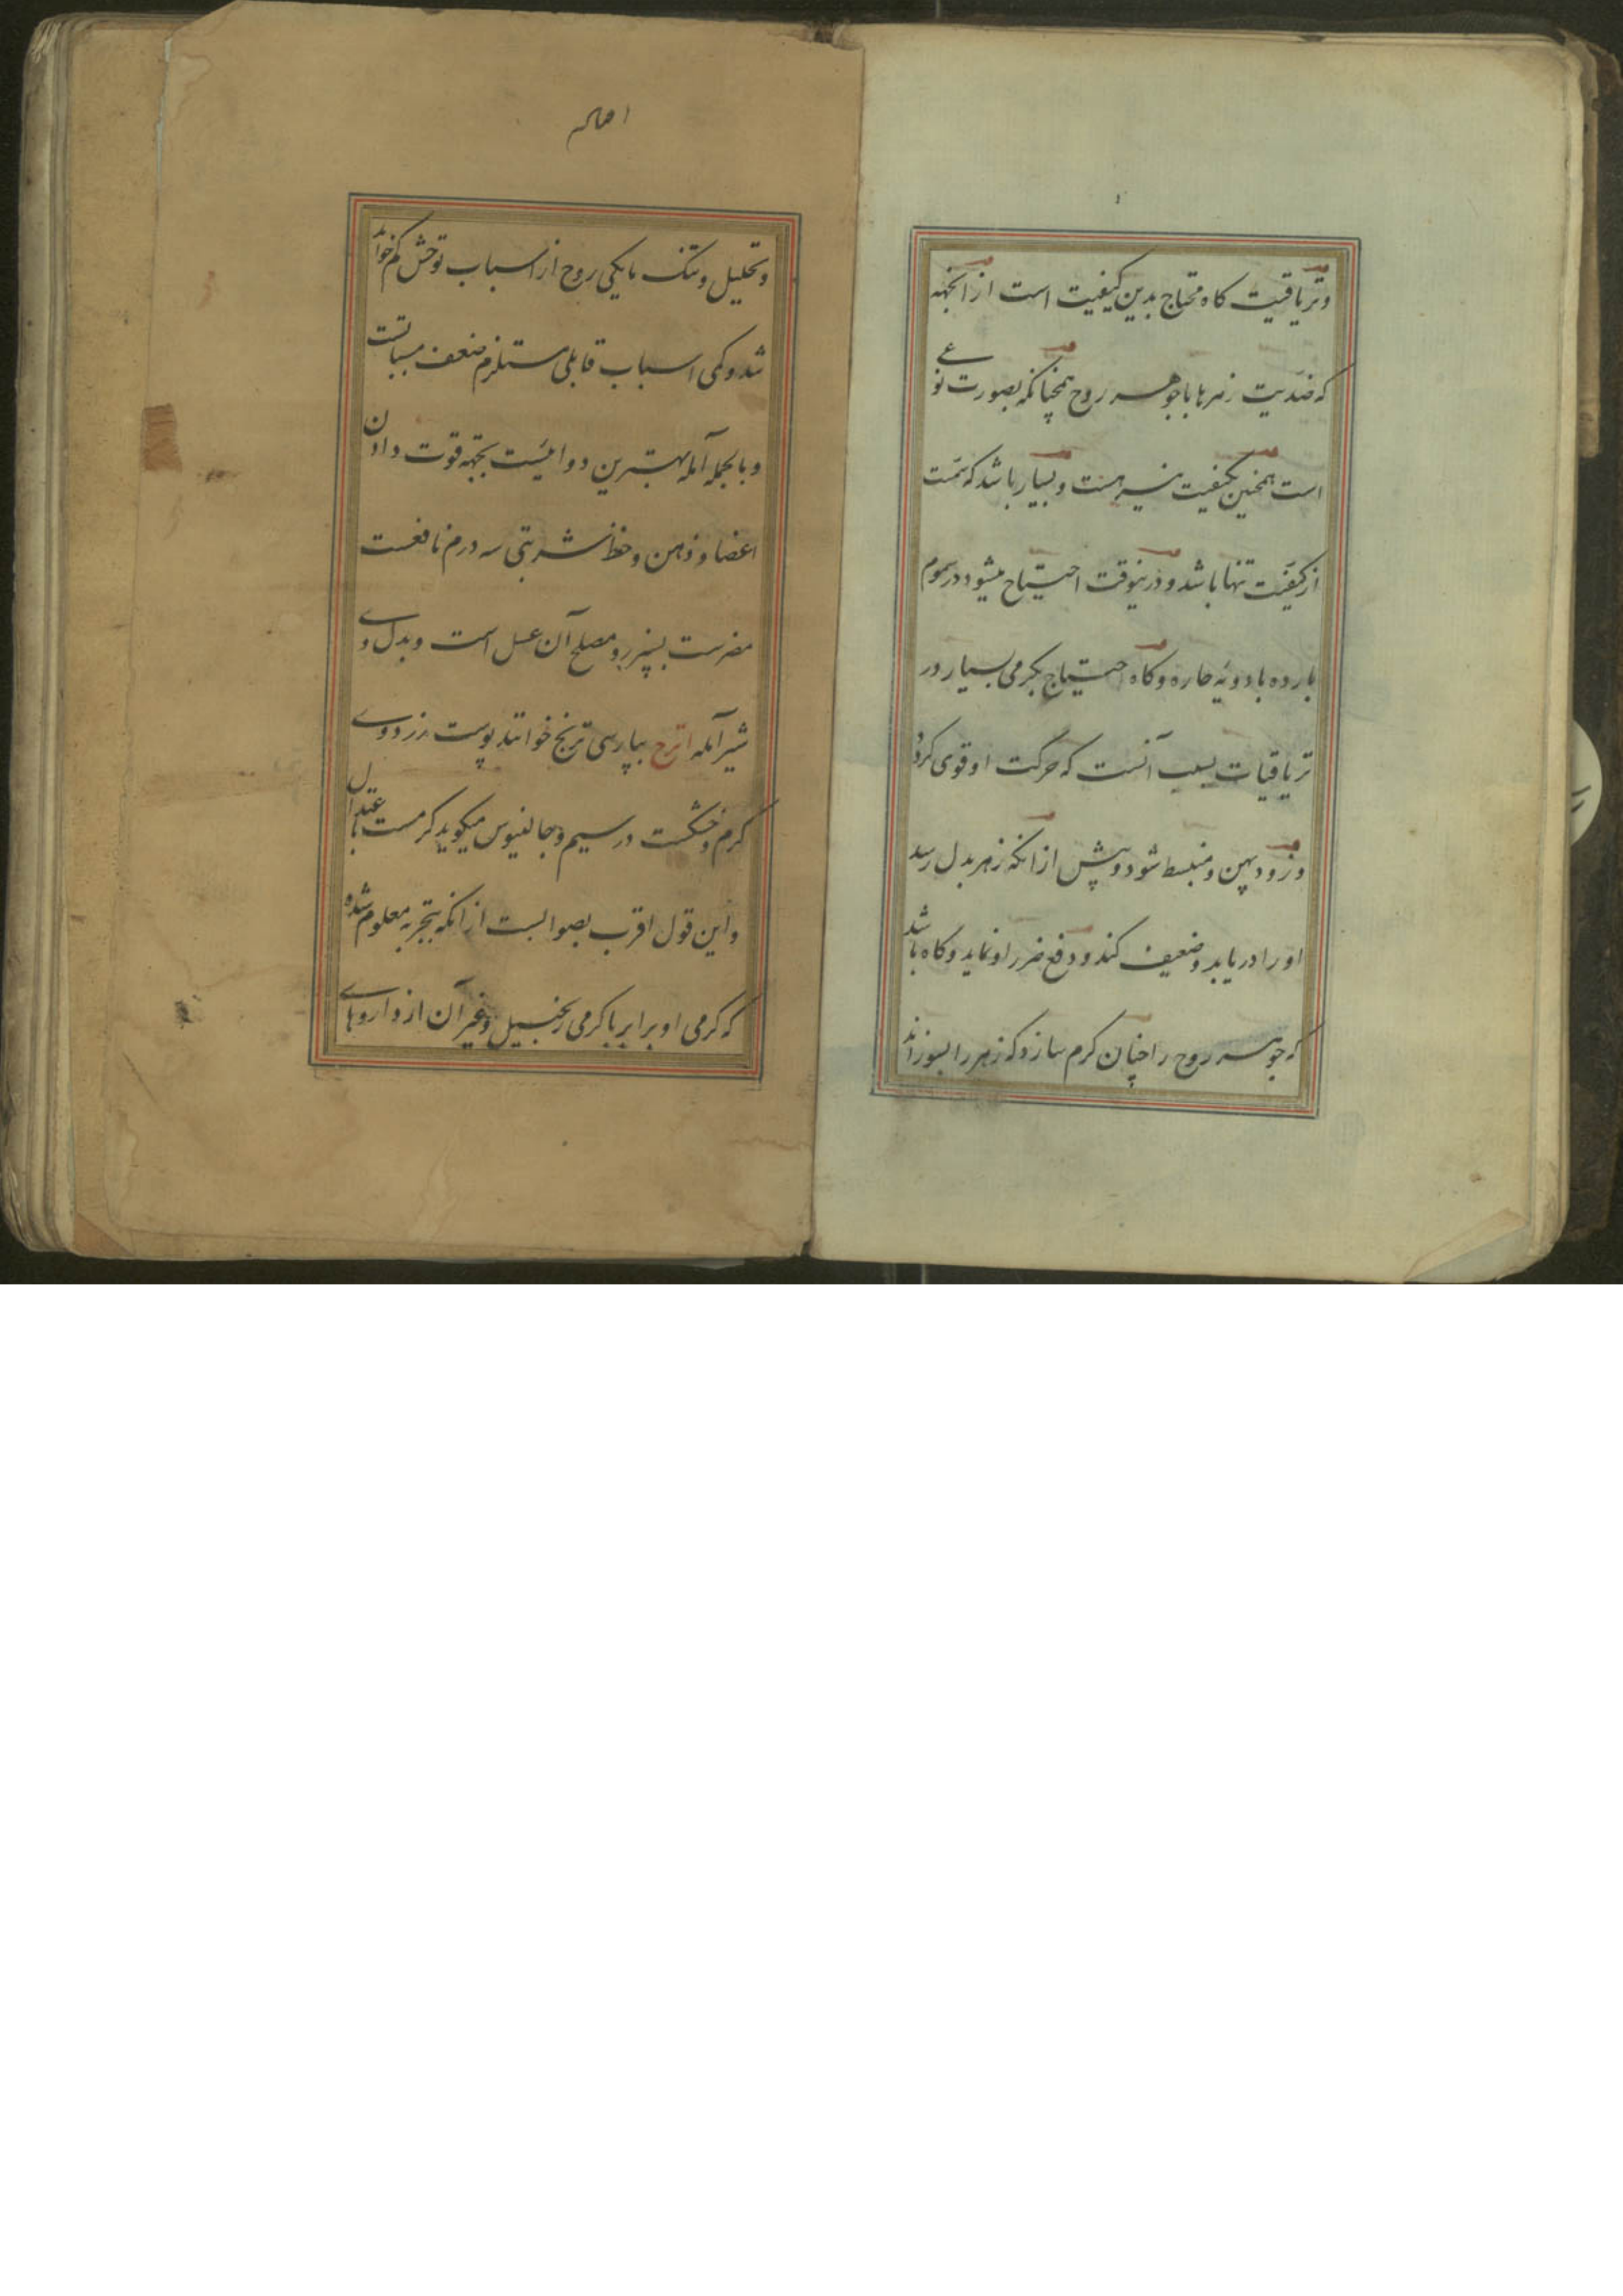 وتریاقیت کاه محتاج بدین کیفیت است از انجهه
که ضدیت زهرها باجوهر روح همچنانکه بصورت نوعے
است همچنین بکیفیت نیز هست و بسیار باشد که
از کیفیت تنها باشد و درینوقت احتیاح میشود در سموم
بارده بادویهٔ حاره و کاه احتیاج بکرمی بسیار در
تریاقیات بسبب آنست که حرکت او قوی کردد
و زود پهن و منبسط شود و پیش از انکه زهر بدل رسد
او را دریابد و ضعیف کند و دفع ضرر او نماید و کاه باشد
که جوهر روح را چنان کرم سازد که زهر را بسوزاند
وتحلیل وتنک مایکی روح از اسباب توحش کم خواهد
شد و کمی اسباب قابلی مستلزم ضعف مسبباتست
و بالجمله آمله بهترین دوائیست بجهة قوت دادن
اعضا و ذهن و حفظ شربتی سه درم نافعست
مضرست بسپرز و مصلح آن عسل است و بدل وے
شیر آمله اترج بپارسی ترنج خوانند پوست زرد وے
کرم و خشکست در سیم و جالینوس میکوید کرمست باعتدال
و این قول اقرب بصوابست از انکه بتجربه معلوم شده
که کرمی او برابر با کرمی زنجبیل و غیر آن از داروهاے